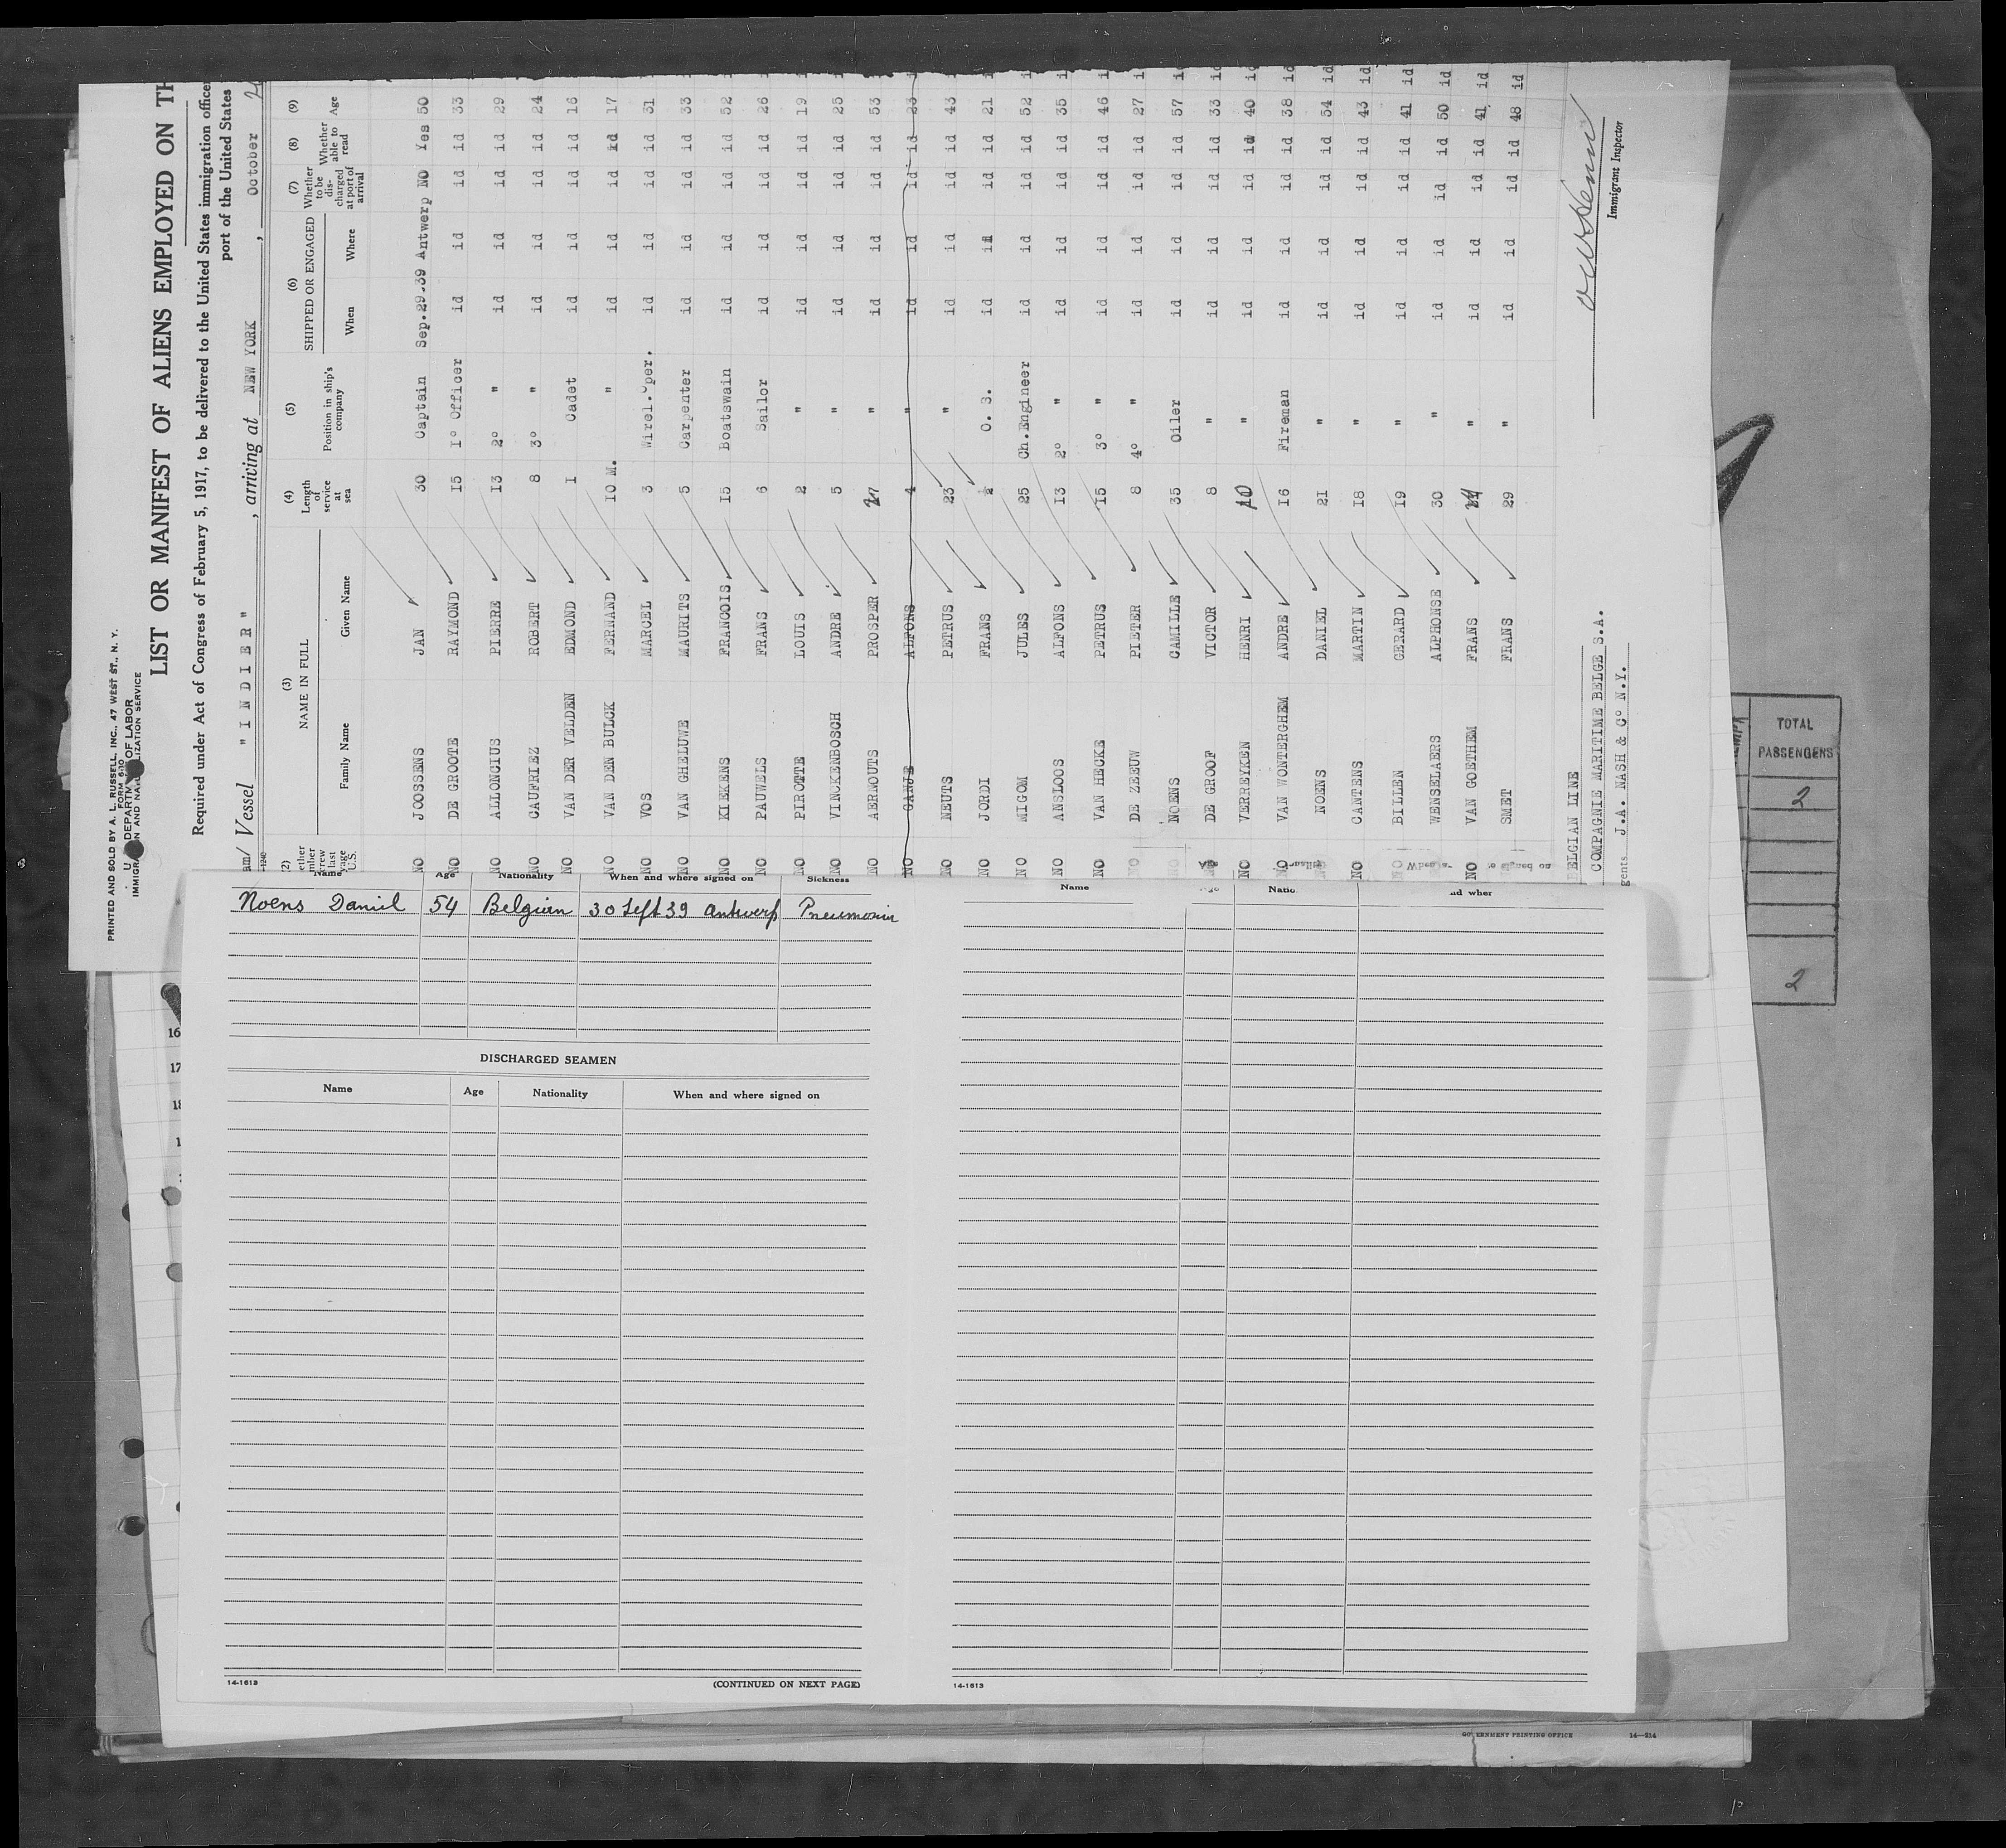 PRINTED AND SOLD BY A. L. RUSSELL, INC., 47 WEST ST., N. Y.
FORM 680
U DEPARTM OF LABOR
IMMIGRA ON AND NA LIZATION SERVICE
LIST OR MANIFEST OF ALIENS EMPLOYED ON TH
Required under Act of Congress of February 5, 1917, to be delivered to the United States immigration officer
port of the United States
am/ Vessel " I N D I E R " , arriving at NEW YORK , October
(2) (3) (4) (5) (6) (7) (8) (9)
NAME IN FULL
SHIPPED OR ENGAGED
Family Name Given Name Length of service at sea Position in ship's company When Where Whether to be dis-charged at port of arrival Whether able to read Age
NO JOOSSENS JAN 30 Captain Sep.29.39 Antwerp NO Yes 50
NO DE GROOTE RAYMOND 15 1° Officer id id id id 33
NO ALLONCIUS PIERRE 13 2° " id id id id 29
NO CAUFRIEZ ROBERT 8 3° " id id id id 24
NO VAN DER VELDEN EDMOND 1 Cadet id id id id 16
NO VAN DEN BULCK FERNAND 10 M. " id id id id 17
NO VOS MARCEL 3 Wirel.Oper. id id id id 31
NO VAN GHELUWE MAURITS 5 Carpenter id id id id 33
NO KIEKENS FRANCOIS 15 Boatswain id id id id 52
NO PAUWELS FRANS 6 Sailor id id id id 26
NO PIROTTE LOUIS 2 " id id id id 19
NO VINCKENBOSCH ANDRE 5 " id id id id 25
NO AERNOUTS PROSPER " id id id id 53
NO GANJE ALFONS 4 " id id id id 23
NO NEUTS PETRUS 23 " id id id id 43
NO JORDI FRANS ½ O. S. id id id id 21
NO MIGOM JULES 25 Ch.Engineer id id id id 52
NO ANSLOOS ALFONS 13 2° " id id id id 35
NO VAN HECKE PETRUS 15 3° " id id id id 46
NO DE ZEEUW PIETER 8 4° " id id id id 27
NOENS CAMILLE 35 Oiler id id id id 57
DE GROOF VICTOR 8 " id id id id 33
NO VERREYKEN HENRI 10 " id id id id 40
NO VAN WONTERGHEM ANDRE 16 Fireman id id id id 38
NOENS DANIEL 21 " id id id id 54
NO CANTENS MARTIN 18 " id id id id 43
NO BILLEN GERARD 19 " id id id id 41
WENSELAERS ALPHONSE 30 " id id id id 50
NO VAN GOETHEM FRANS " id id id id 41
SMET FRANS 29 " id id id id 48
BELGIAN LINE
COMPAGNIE MARITIME BELGE S.A.
gents J.A. NASH & C° N.Y.
Immigrant Inspector
TOTAL
PASSENGERS
2
2
Name Age Nationality When and where signed on Sickness
Noens Daniel 54 Belgian 30 Sept 39 Antwerp Pneumonia
DISCHARGED SEAMEN
Name Age Nationality When and where signed on
14-1613
(CONTINUED ON NEXT PAGE)
Name Natio nd wher
14-1613
16
17
GOVERNMENT PRINTING OFFICE 14—214